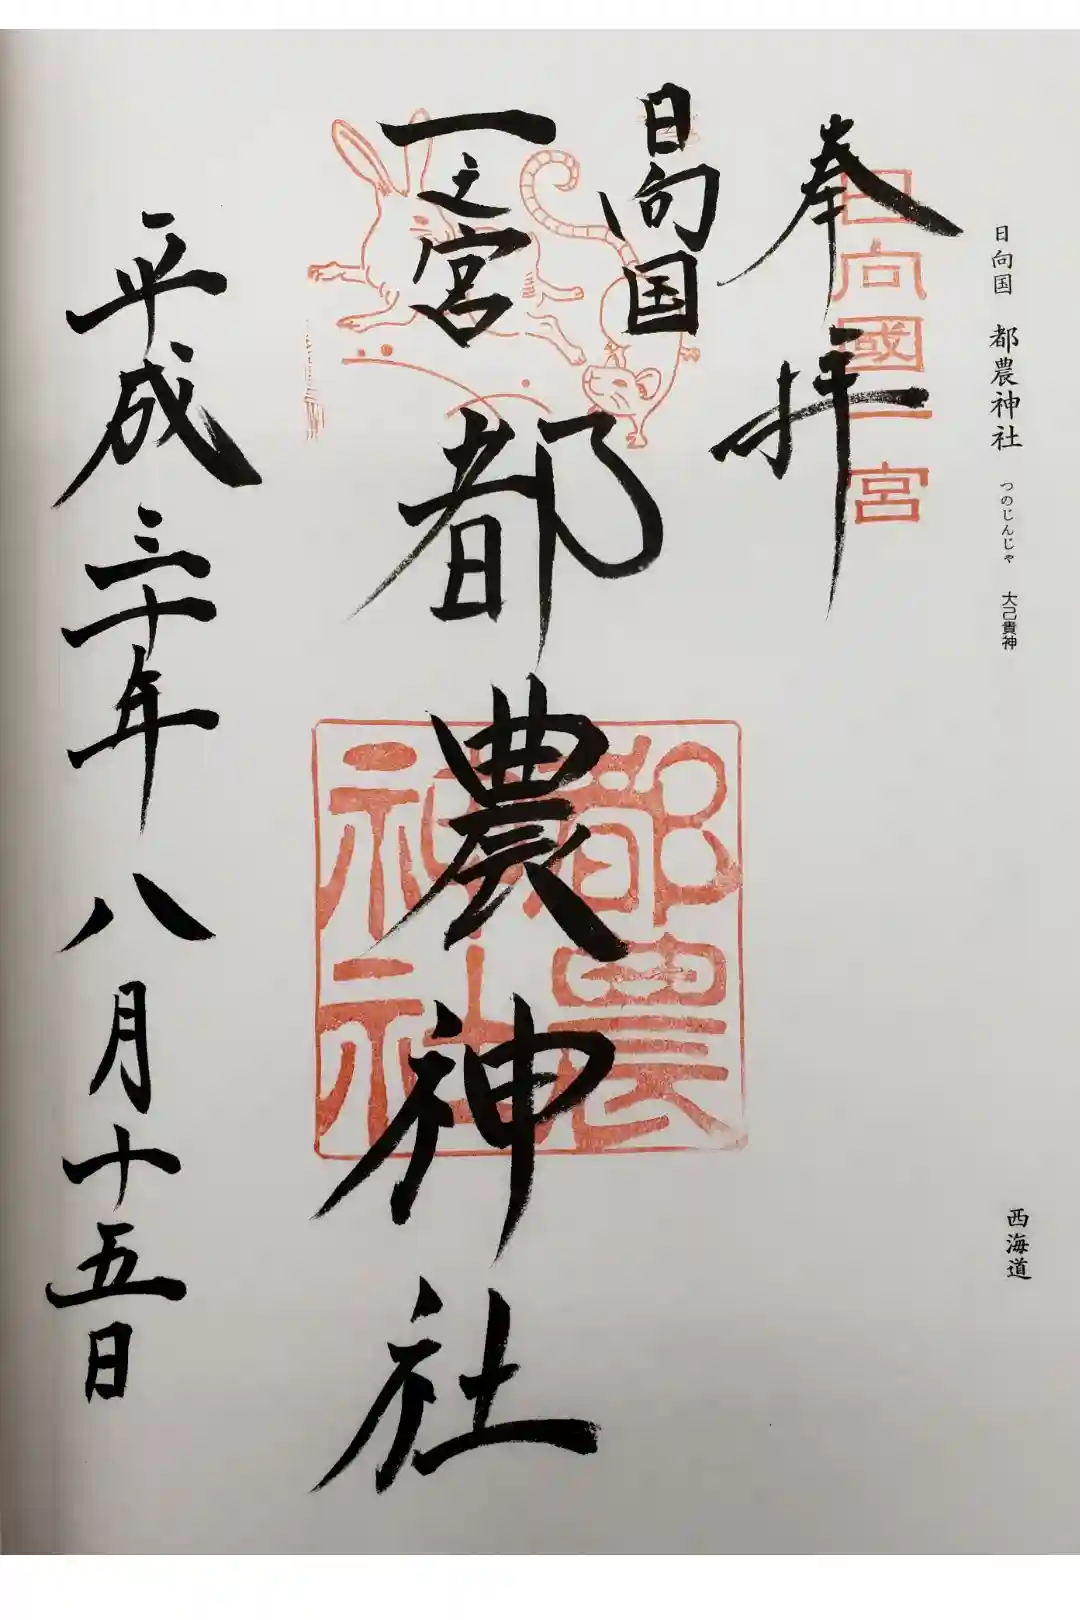 日向国 都農神社 つのじんじゃ 大己貴神
西海道
奉拝
日向國一宮
日向国
一之宮
都農神社
都農
神社
平成三十年八月十五日